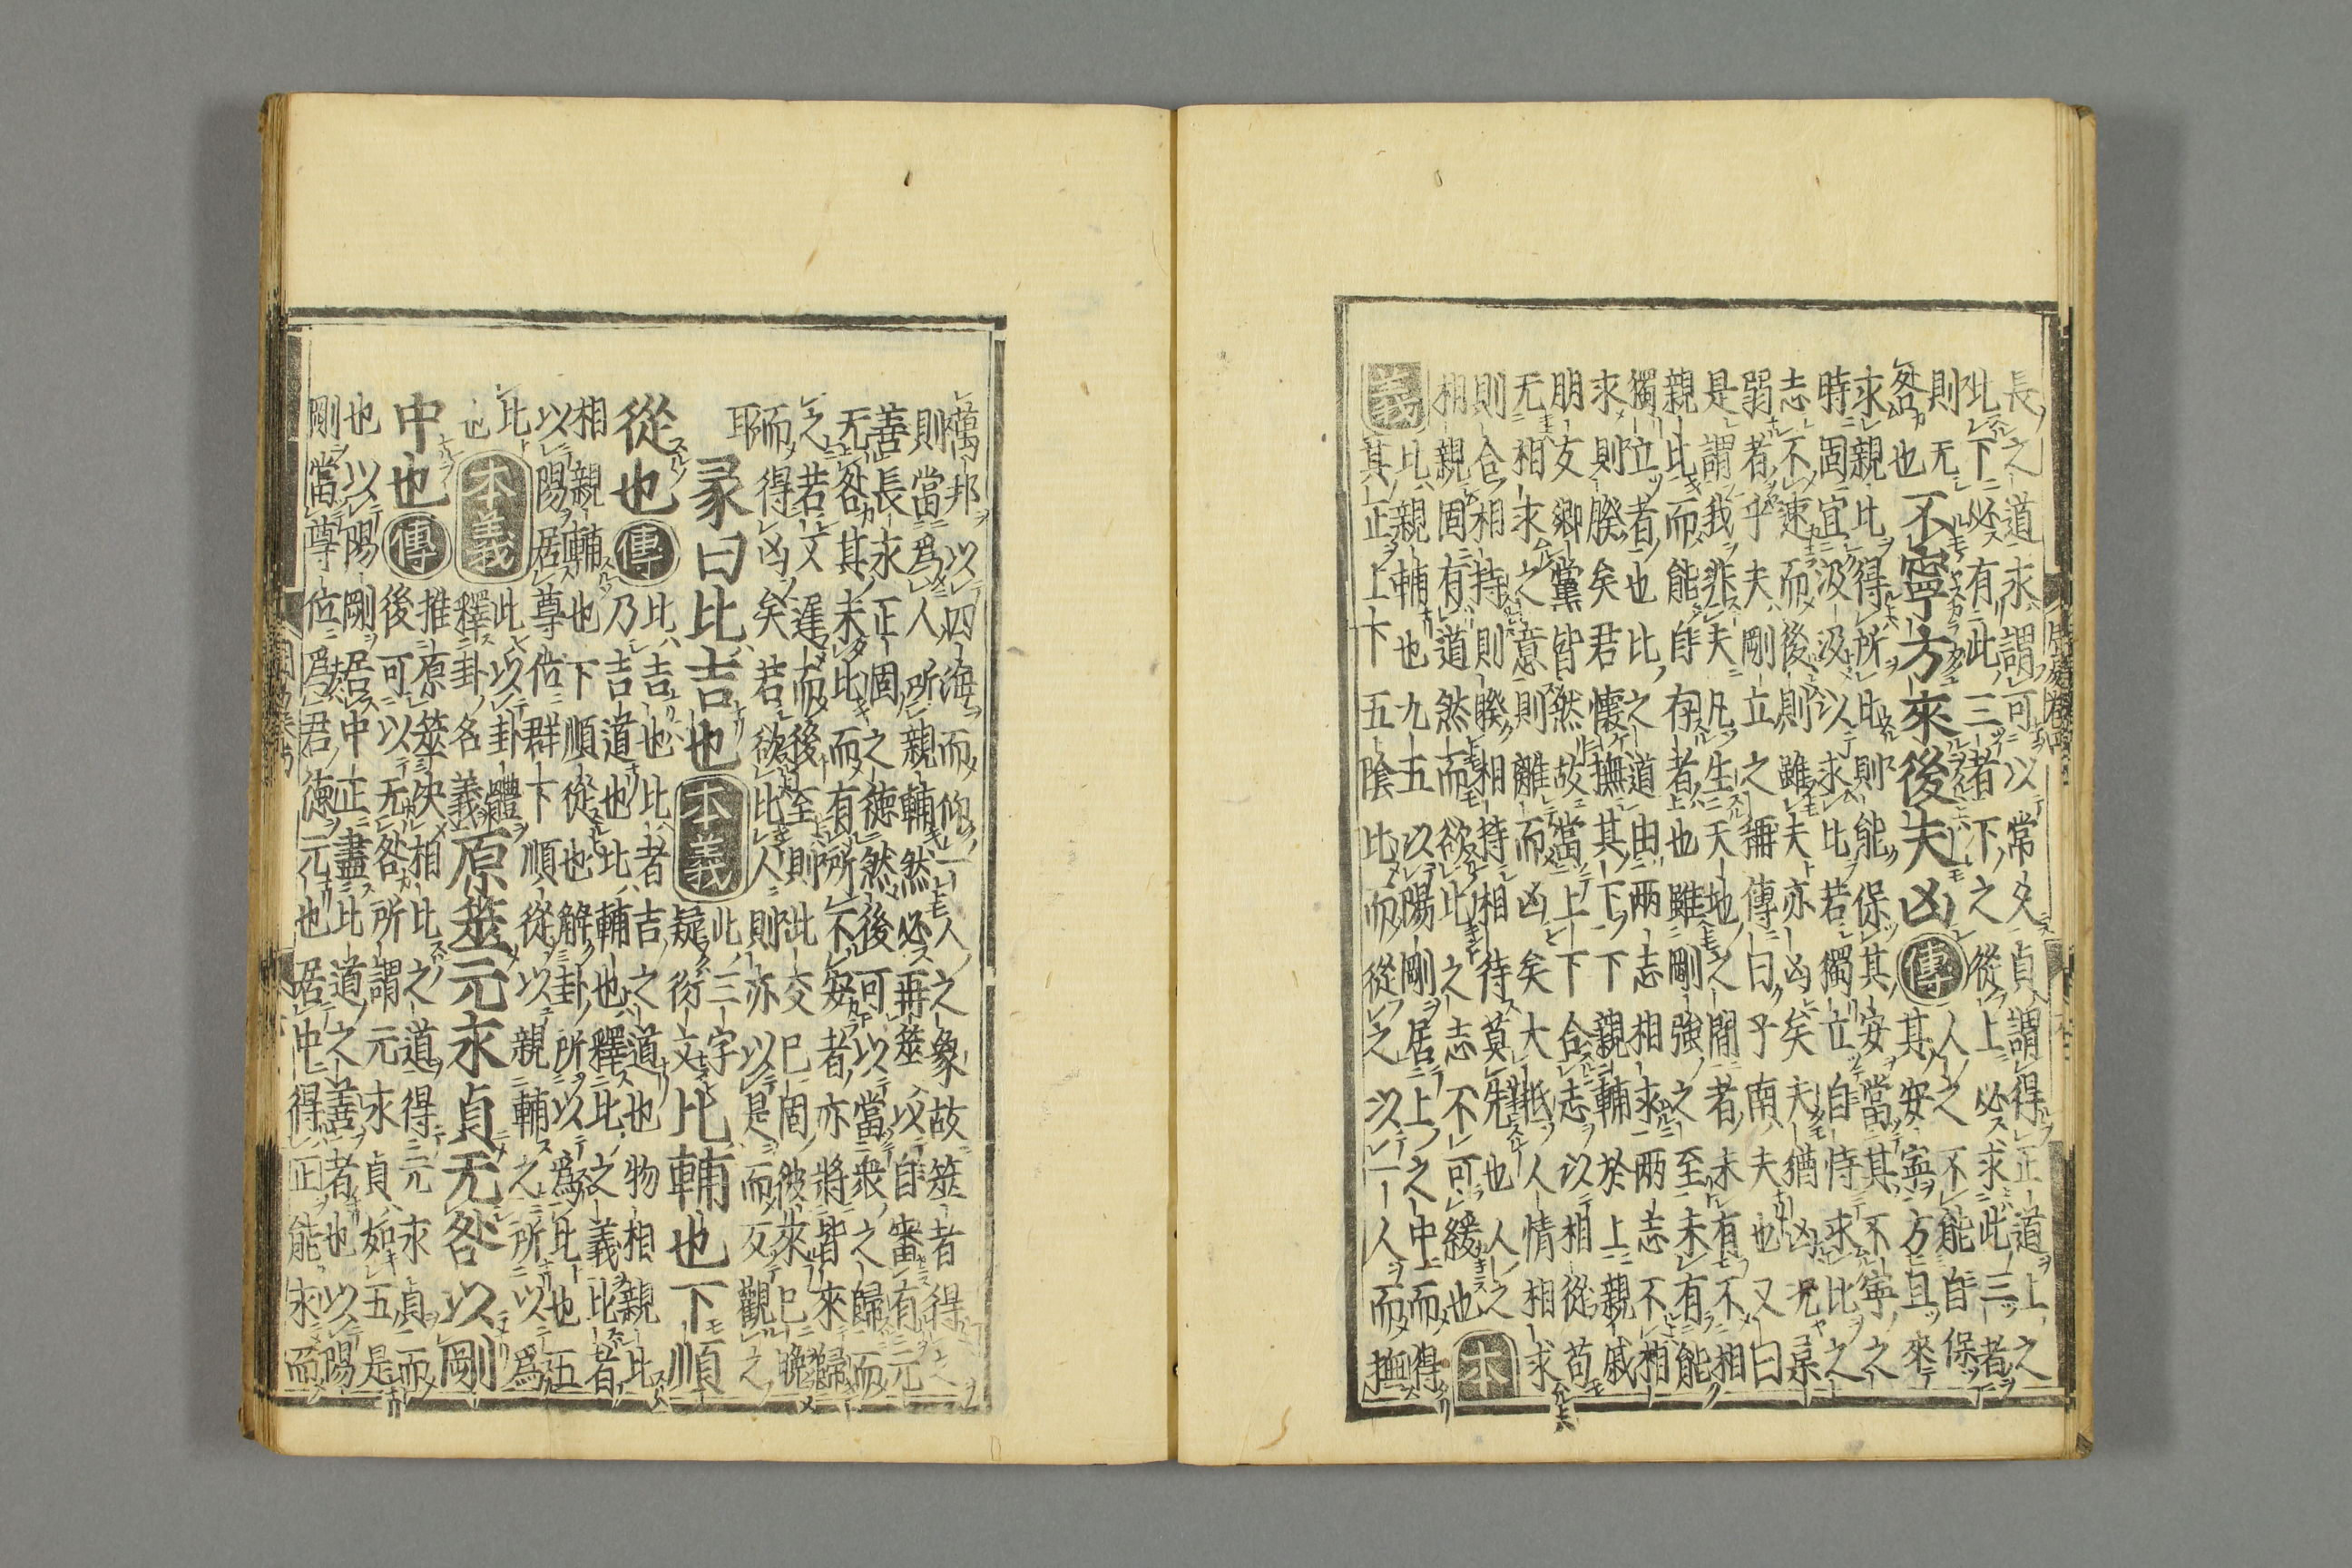 長之道永謂可以常久貞謂得正道上之
比下必有此三者下之從上必求此三者
則无咎也不寧方來後夫凶傳人之不能自保其安寧方且來
求親比得所比則能保其安當其不寧之
時固宜汲汲以求比若獨立自恃求比之
志不速而後則雖夫亦凶矣夫猶凶況柔
弱者乎夫剛立之稱傳曰子南夫也又曰
是謂我非夫凡生天地之間者未有不相
親比而能自存者也雖剛強之至未有能
獨立者也比之道由兩志相求兩志不相
求則睽矣君懷撫其下下親輔於上親戚
朋友鄉黨皆然故當上下合志以相從苟
无相求之意則離而凶矣大抵人情相求
則合相持則睽相持相待莫先也人之
相親固有道然而欲比之志不可緩也本
義比親輔也九五以陽剛居上之中而得
其正上下五陰比而從之以一人而撫
萬邦以四海而仰一人之象故筮者得之
則當爲人所親輔然必再筮以自審有元
善長永正固之德然後可以當衆之歸而
无咎其未比而有所不安者亦將皆來歸
之若又遲而後至則此交已固彼來已晚
而得凶矣若欲比人則亦以是而反觀之
耳
彖曰比吉也本義此三字疑衍文比輔也下順
從也傳比吉也比者吉之道也物相親比
乃吉道也比輔也釋比之義比者
相親輔也下順從也解卦所以爲比也五
以陽居尊位群下順從以親輔之所以爲
比也本義此以卦體釋卦名義原筮元永貞无咎以剛
中也傳推原筮決相比之道得元永貞而
後可以无咎所謂元永貞如五是
也以陽剛居中正盡比道之善者也以陽
剛當尊位爲君德元也居中得正能永而